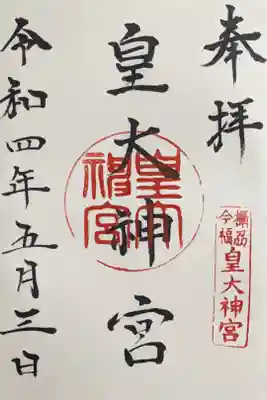 奉拝
皇大神宮
皇大神宮
今福
皇大神宮
令和四年五月三日